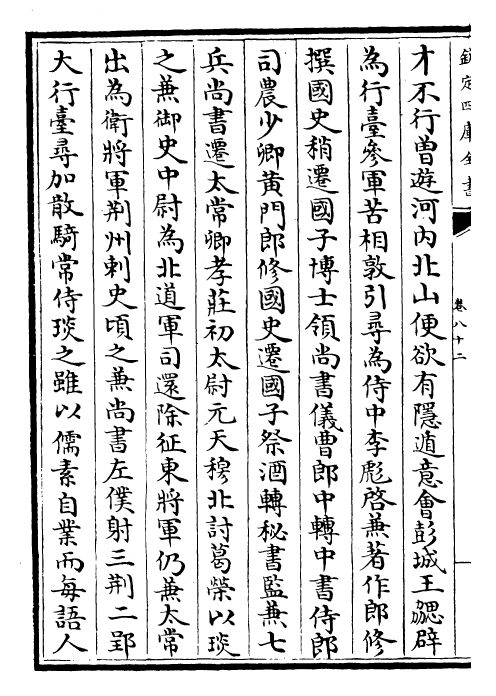 欽定四庫全書
卷八十二
才不行曽遊河内北山便欲有隱遁意會彭城王勰辟
為行臺參軍苦相敦引尋為侍中李彪啓兼著作郎修
撰國史稍遷國子博士領尚書儀曹郎中轉中書侍郎
司農少卿黄門郎修國史遷國子祭酒轉秘書監兼七
兵尚書遷太常卿孝莊初太尉元天穆北討葛榮以琰
之兼御史中尉為北道軍司還除征東將軍仍兼太常
出為衛將軍荆州刺史頃之兼尚書左僕射三荆二郢
大行臺尋加散騎常侍琰之雖以儒素自業而每語人